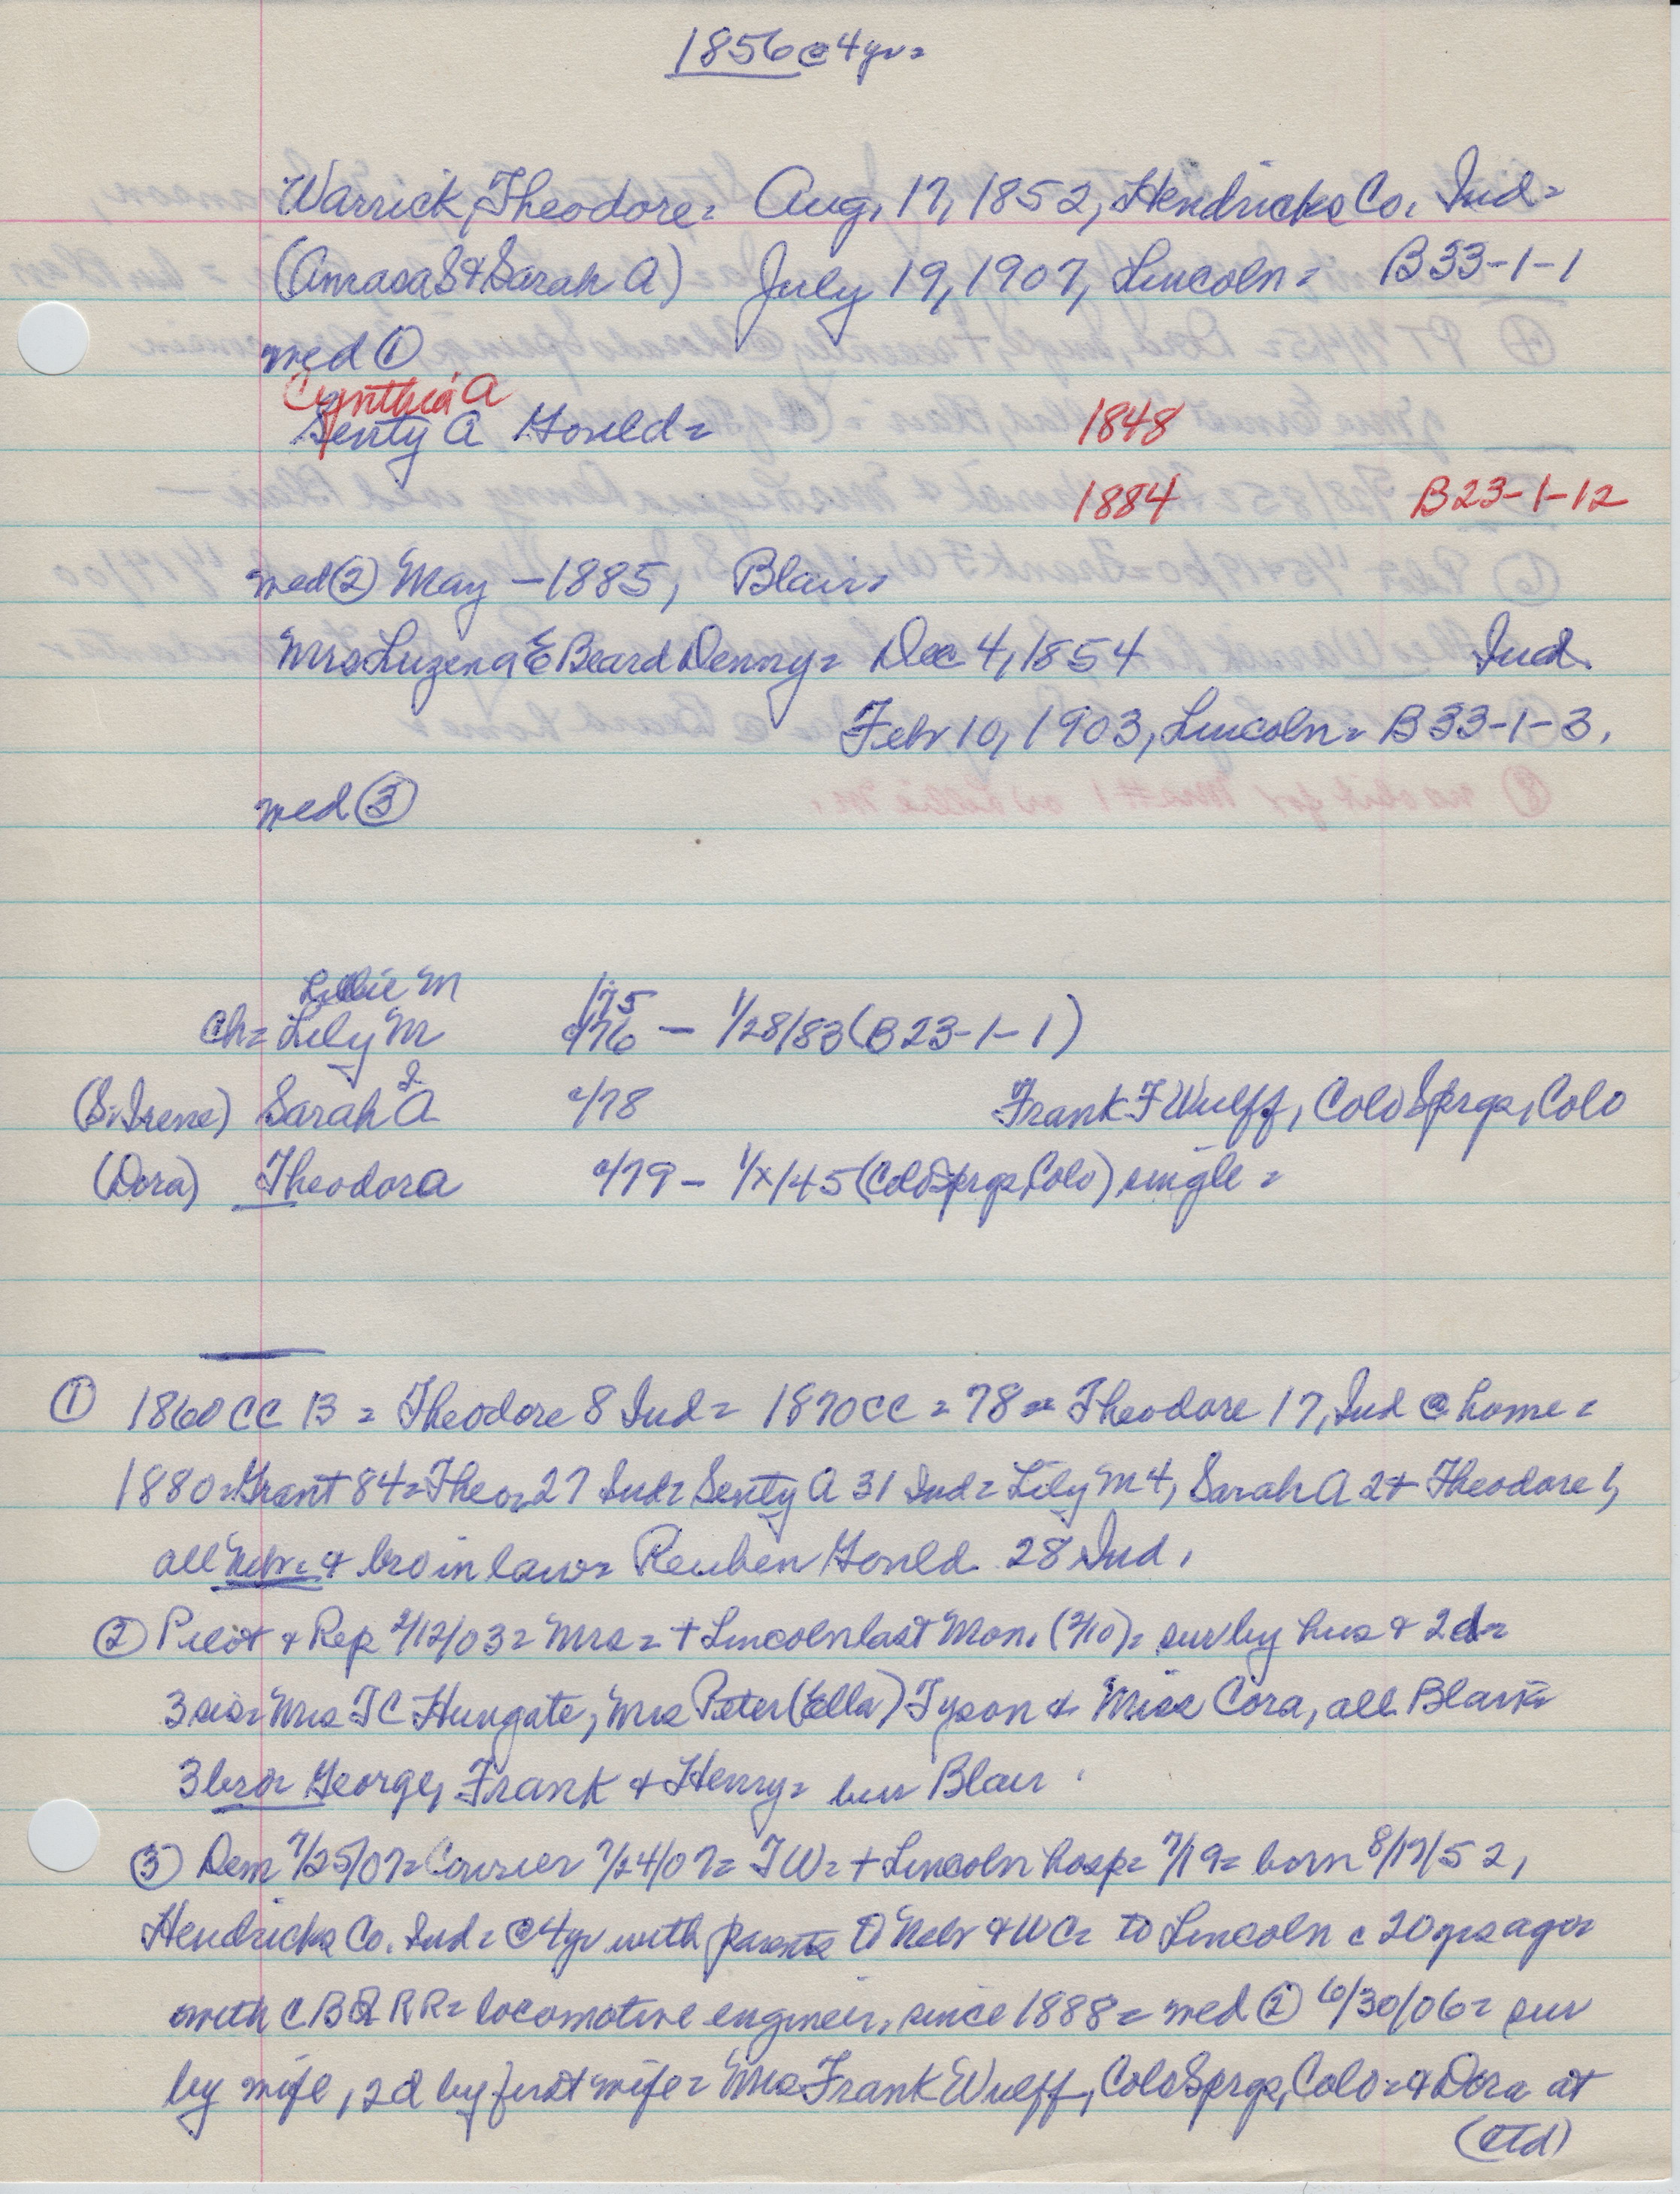 1856 @ 4yr=
Warrick, Theodore= Aug. 17, 1852, Hendricks Co. Ind=
(Amasa S & Sarah A) July 19, 1907, Lincoln= B33-1-1
med ①
Cynthia A
Senty A Gould= 1848
1884 B23-1-12
med ② May – 1885, Blair=
Mrs Luzena E Beard Denny= Dec 4, 1854 Ind.
Febr 10, 1903, Lincoln= B33-1-3.
med ③
Lillie M 1/75
Ch= Lily M c/76 – 1/28/83 (B23-1-1)
(S. Irene) Sarah A I c/78 Frank F Wulff, Colo Sprgs, Colo
(Dora) Theodora c/79 – 1/x/45 (Colo Sprgs, Colo) single=
① 1860 CC B = Theodore 8 Ind= 1870 CC = 78 = Theodore 17, Ind @ home=
1880= Grant 84= Theo= 27 Ind= Senty A 31 Ind= Lily M 4, Sarah A 2 + Theodore 1,
all Nebr= & bro in law= Reuben Gould 28 Ind.
② Pilot & Rep 2/12/03= Mrs= + Lincoln last Mon. (2/10)= sur by hus & 2d=
3 sis= Mrs T C Hungate, Mrs Peter (Ella) Tyson & Miss Cora, all Blair=
3 bro= George, Frank & Henry= bur Blair.
③ Dem 7/25/07= Courier 7/24/07= TW= + Lincoln hosp= 7/19= born 8/17/52,
Hendricks Co. Ind= @ 4yr with parents to Nebr & WC= to Lincoln c 20 yrs ago=
with CBQ RR= locomotive engineer, since 1888= med ② 6/30/06= sur
by wife, 2d by first wife= Mrs Frank Wulff, Colo Sprgs, Colo= & Dora at
(ctd)